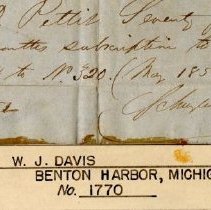 Pettit Seventy
subscription to
to No. 320. (May 185
W. J. DAVIS
BENTON HARBOR, MICHIG
No. 1770